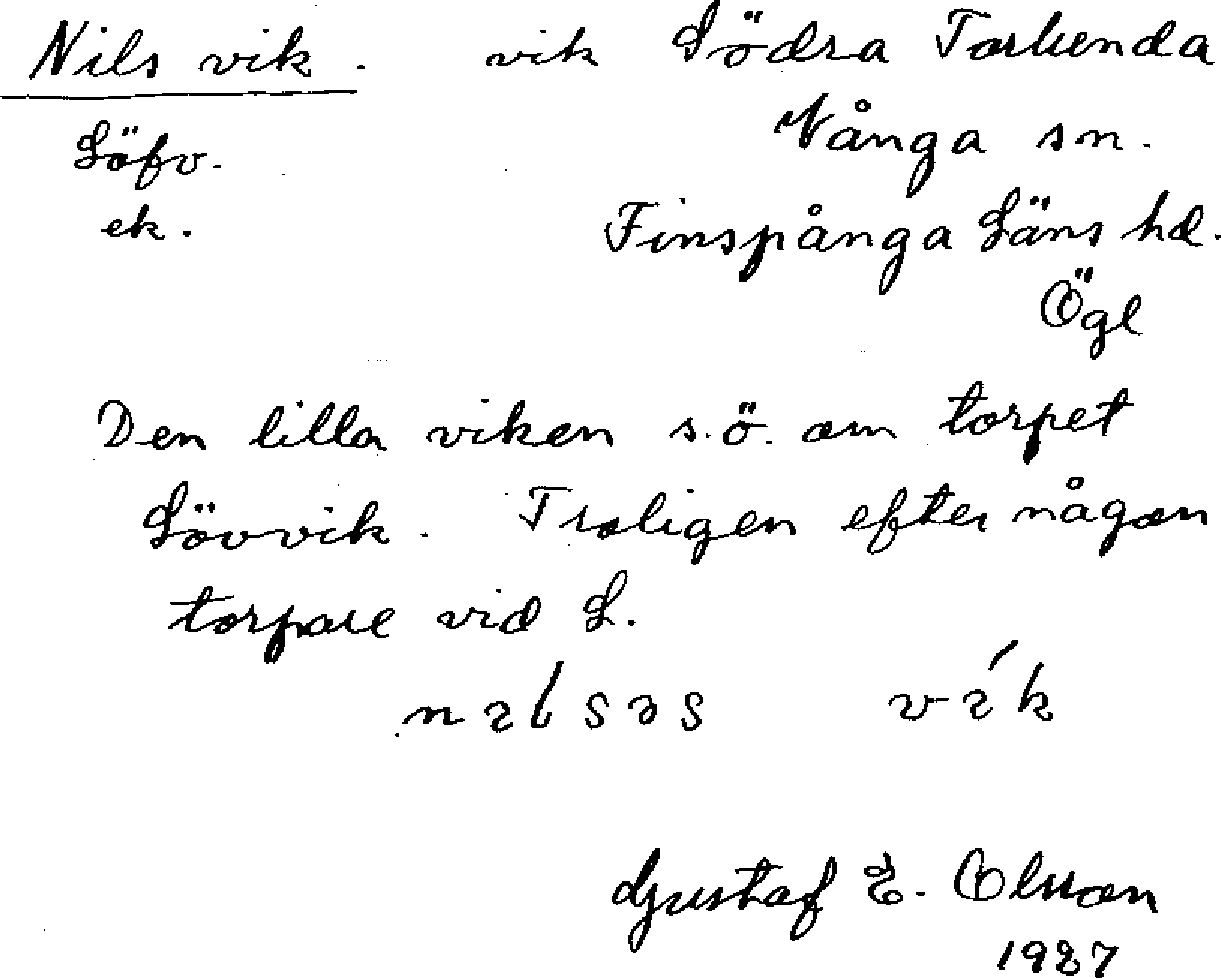 Nils vik. vik Södra Torlunda
Löfv. Vånga sn.
ek. Finspånga Läns hd.
Ögl
Den lilla viken s.ö. om torpet
Lövvik. Troligen efter någon
torpare vid L.
vik
Gustaf E. Olsson
1927